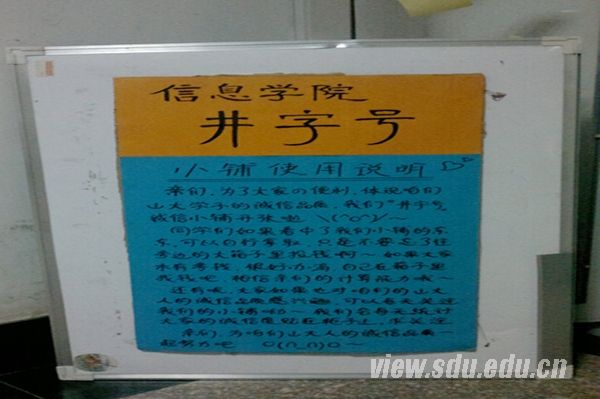 信息学院
井字号
小铺使用说明
亲们,为了大家の便利,体现咱们
山大学子的诚信品质,我们"井字号"
诚信小铺开张啦 \(^o^)/~
同学们如果看中了我们小铺的东
东,可以自行拿取,只是不要忘了往
旁边的大箱子里投钱啊~如果大家
木有零钱,很好办滴,自己在箱子里
找钱吧,相信亲们的计算能力哦~
还有呢,大家如果也对咱们的山大
人的诚信品质感兴趣,可以每天关注
我们的小铺呦~我们会每天统计
大家的诚信度贴在板子上,求关注
亲们,为咱们山大人的诚信品质一
起努力吧 O(∩_∩)O~
view.sdu.edu.cn